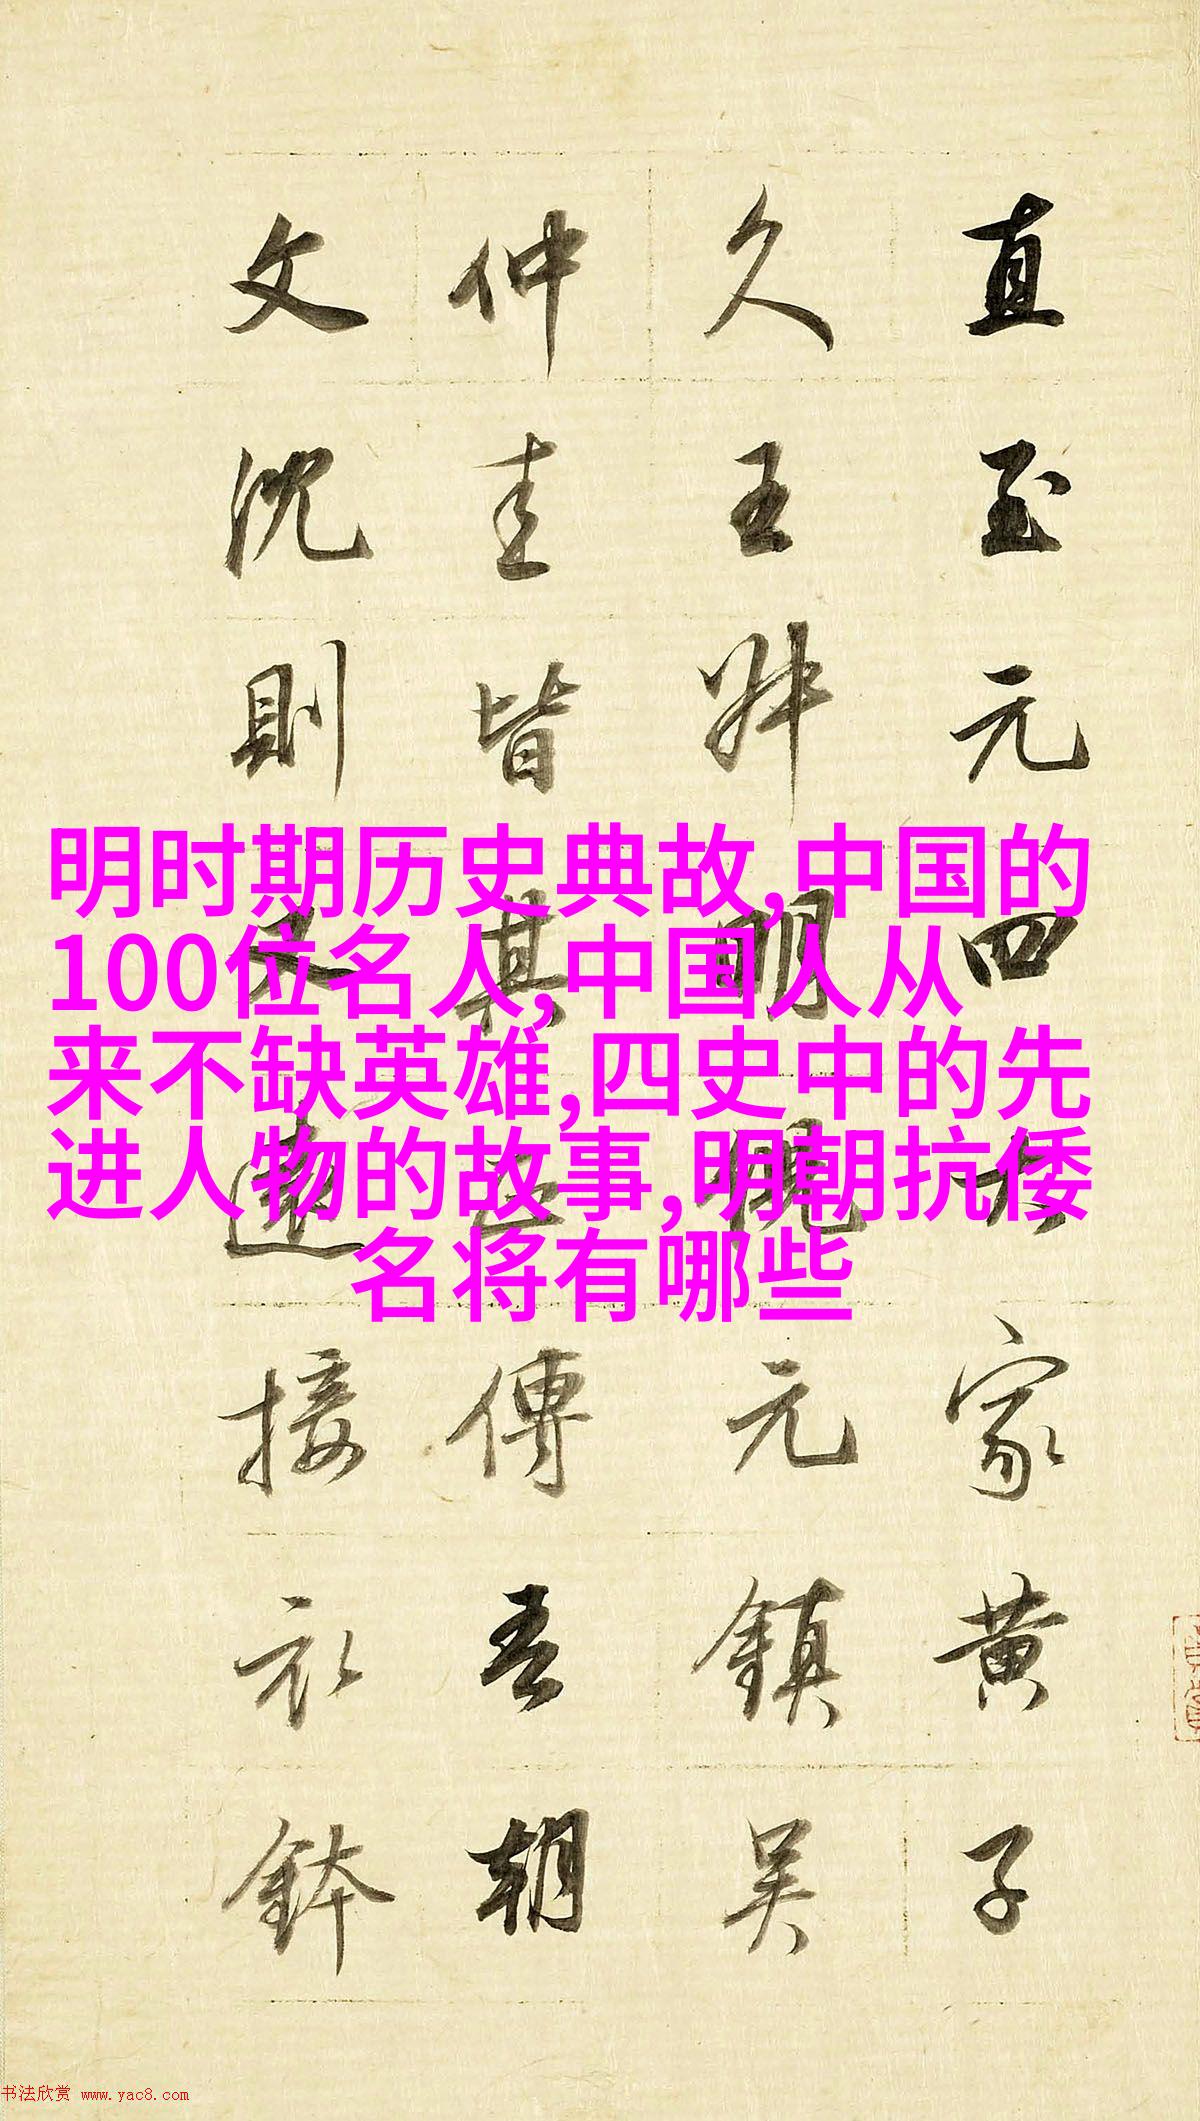 明时期历史典故,中国的
100位名人,中国人从
来不缺英雄,四史中的先
进人物的故事,明朝抗倭
名将有哪些
直至元四大家黄子
久王叔明倪元鎮吴
仲圭皆其正傳吾朝
文沈則又遠接衣鉢
书法欣赏 www.yac8.com